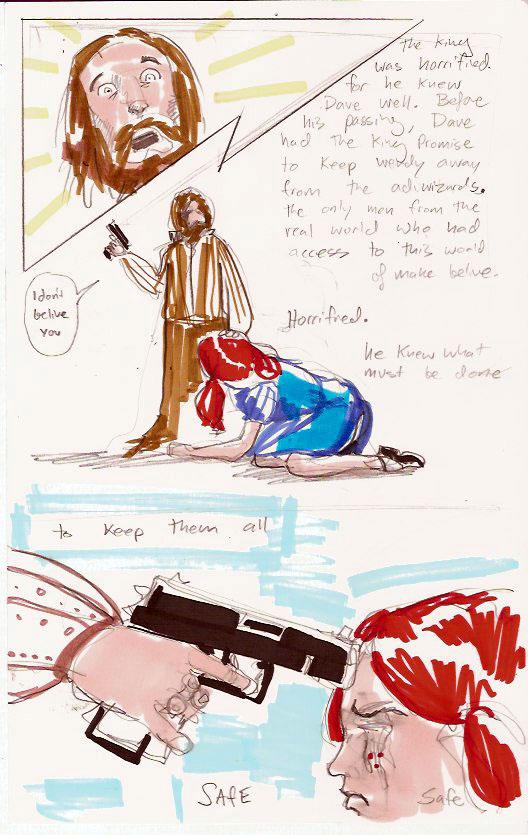 the King
was horrified.
for he knew
Dave well. Before
his passing, Dave
had the King Promise
to keep wendy away
from the adwizards.
the only men from the
real world who had
access to this world
of make belive.
I don't
belive
you
Horrified.
he knew what
must be done
to keep them all
SAFE
Safe